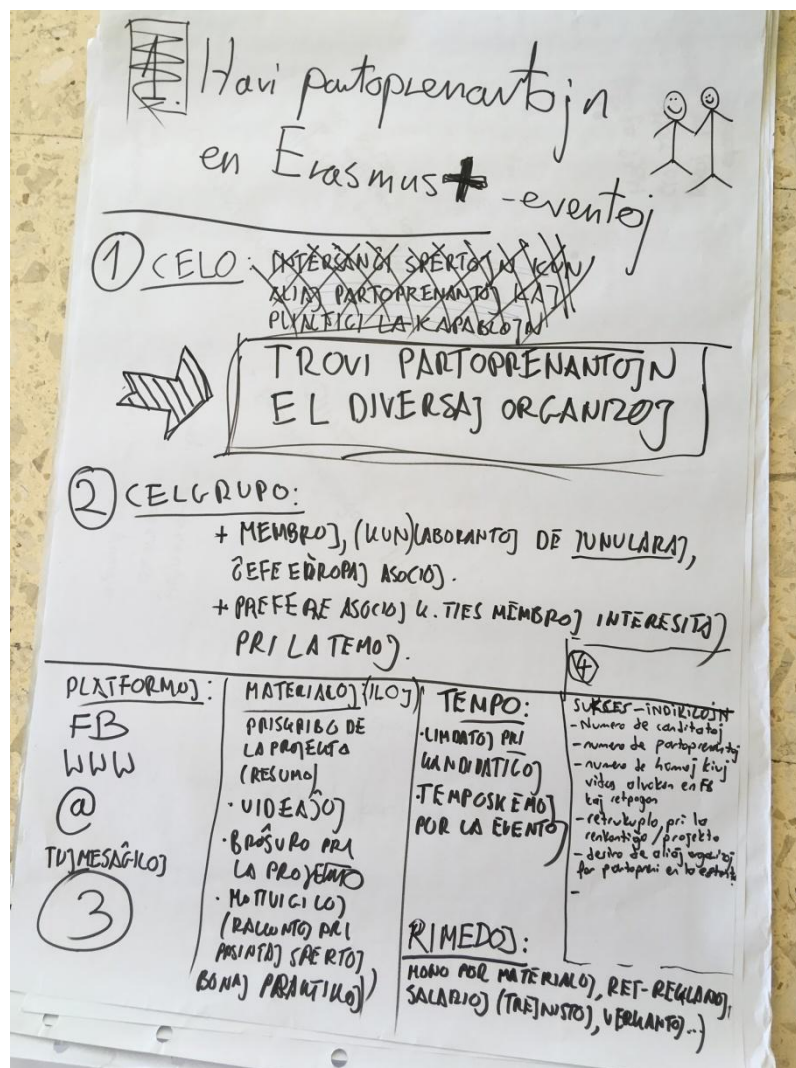 Havi partoprenantojn
en Erasmus+ -eventoj
1 CELO:
INTERŜANĜI SPERTOJN KUN
ALIAJ PARTOPRENANTOJ KAJ
LA KAPABLOJN
TROVI PARTOPRENANTOJN
EL DIVERSAJ ORGANIZOJ
2 CELGRUPO:
+ MEMBROJ, (KUN)LABORANTOJ DE JUNULARAJ,
ĈEFE EŬROPAJ ASOCIOJ.
+ PREFERE ASOCIOJ K. TIES MEMBROJ INTERESITAJ
PRI LA TEMOJ.
PLATFORMOJ:
FB
WWW
@
TUJMESAĜILOJ
3
MATERIALOJ (ILOJ)
PRISKRIBO DE
LA PROJEKTO
(RESUMO)
· VIDEAĴOJ
· BROŜURO PRI
LA PROJEKTO
· MOTIVIGILOJ
(RAKONTOJ PRI
PASINTAJ SPERTOJ,
BONAJ PRAKTIKOJ)
TEMPO:
· LIMDATOJ PRI
KANDIDATIĜO
· TEMPOSKEMO
POR LA EVENTO
RIMEDOJ:
MONO POR MATERIALOJ, RET-REKLAMOJ,
SALARIOJ (TREJNISTOJ, VERKANTOJ...)
4
SUKCES-INDIKILOJN
- Numero de canditatoj
- numero de partoprenantoj
- numero de homoj kiuj
vidas alvokon en FB
kaj retpaĝon
- retrokuplo pri la
renkontiĝo / projekto
- deziro de aliaj organizoj
por partopreni en la
-